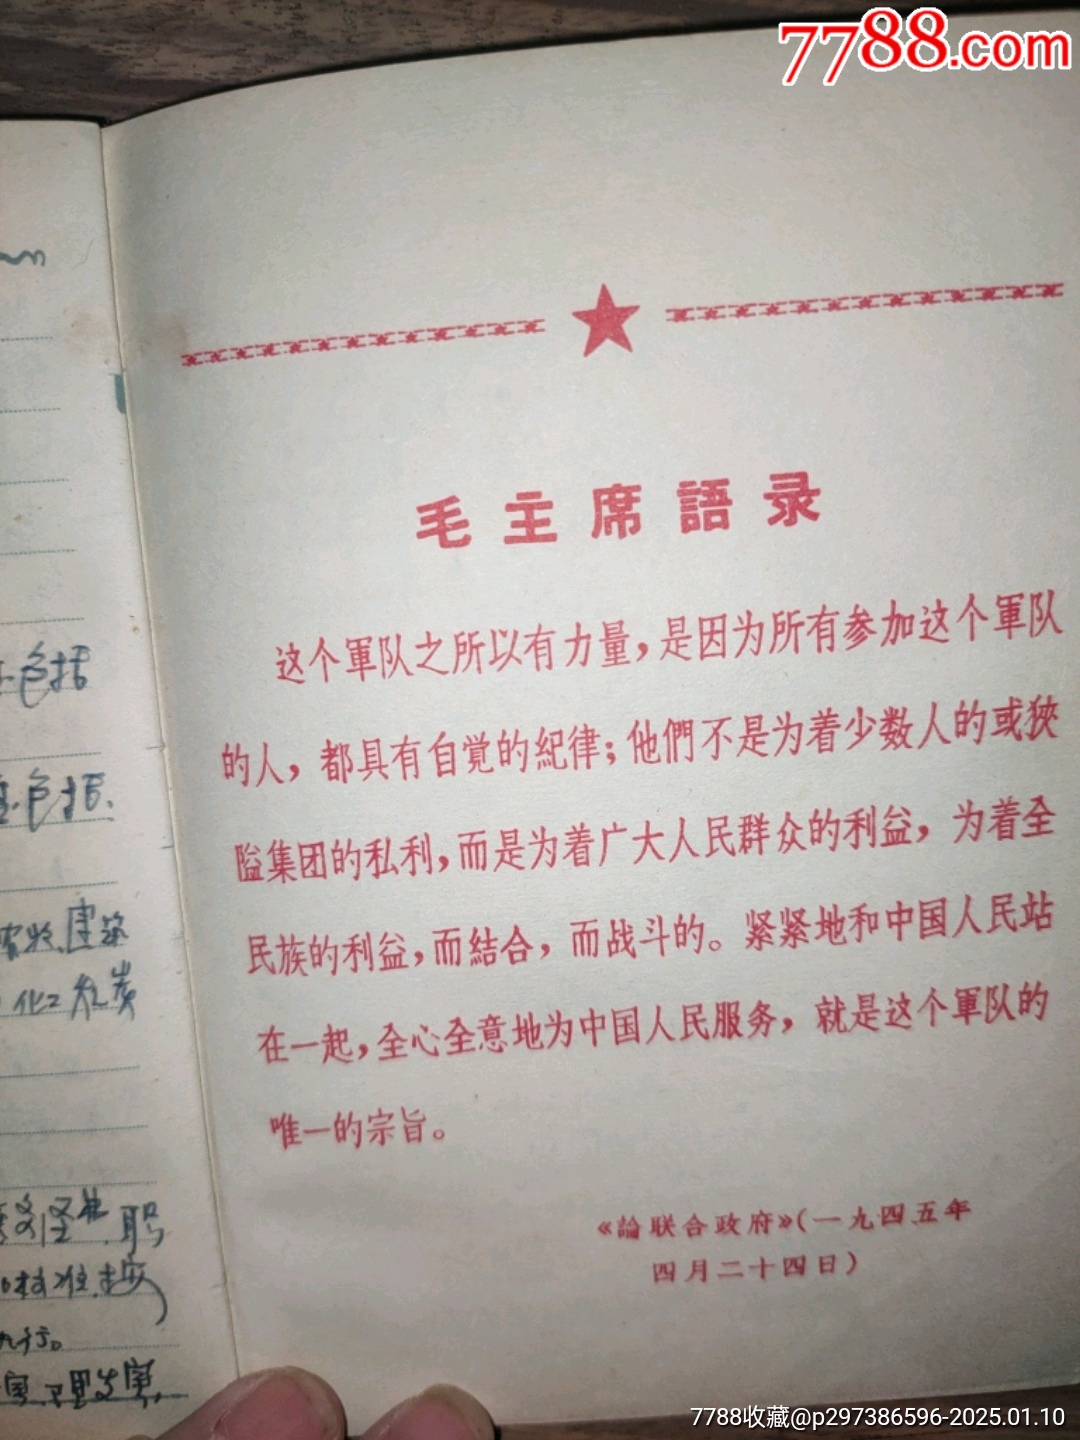 7788.com
毛主席語录
这个軍队之所以有力量，是因为所有参加这个軍队
的人，都具有自覚的紀律；他們不是为着少数人的或狹
隘集团的私利，而是为着广大人民群众的利益，为着全
民族的利益，而結合，而战斗的。紧紧地和中国人民站
在一起，全心全意地为中国人民服务，就是这个軍队的
唯一的宗旨。
《論联合政府》（一九四五年
四月二十四日）
包括
包括、
建築
化工
职
行。
7788收藏@p297386596-2025.01.10